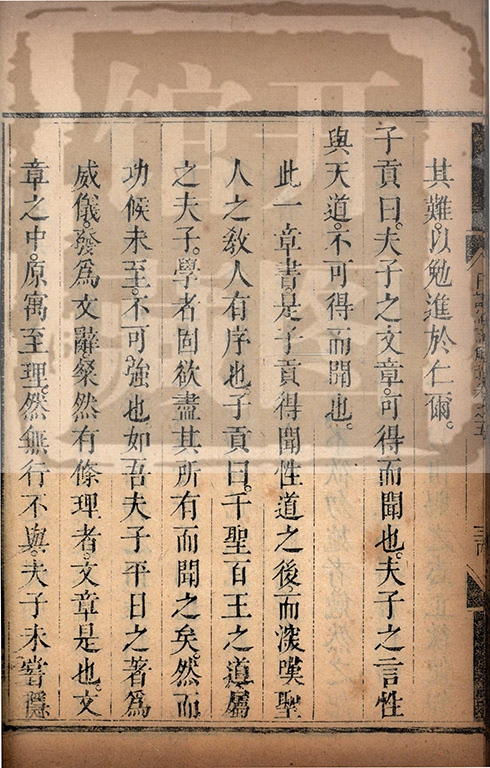 其難。以勉進於仁爾。
子貢曰。夫子之文章。可得而聞也。夫子之言性
與天道。不可得而聞也。
此一章書是子貢得聞性道之後。而深嘆聖
人之教人有序也。子貢曰。千聖百王之道。屬
之夫子。學者固欲盡其所有而聞之矣。然而
功候未至。不可強也。如吾夫子平日之著為
威儀。發為文辭。粲然有條理者。文章是也。文
章之中。原寓至理。然無行不與。夫子未嘗隱